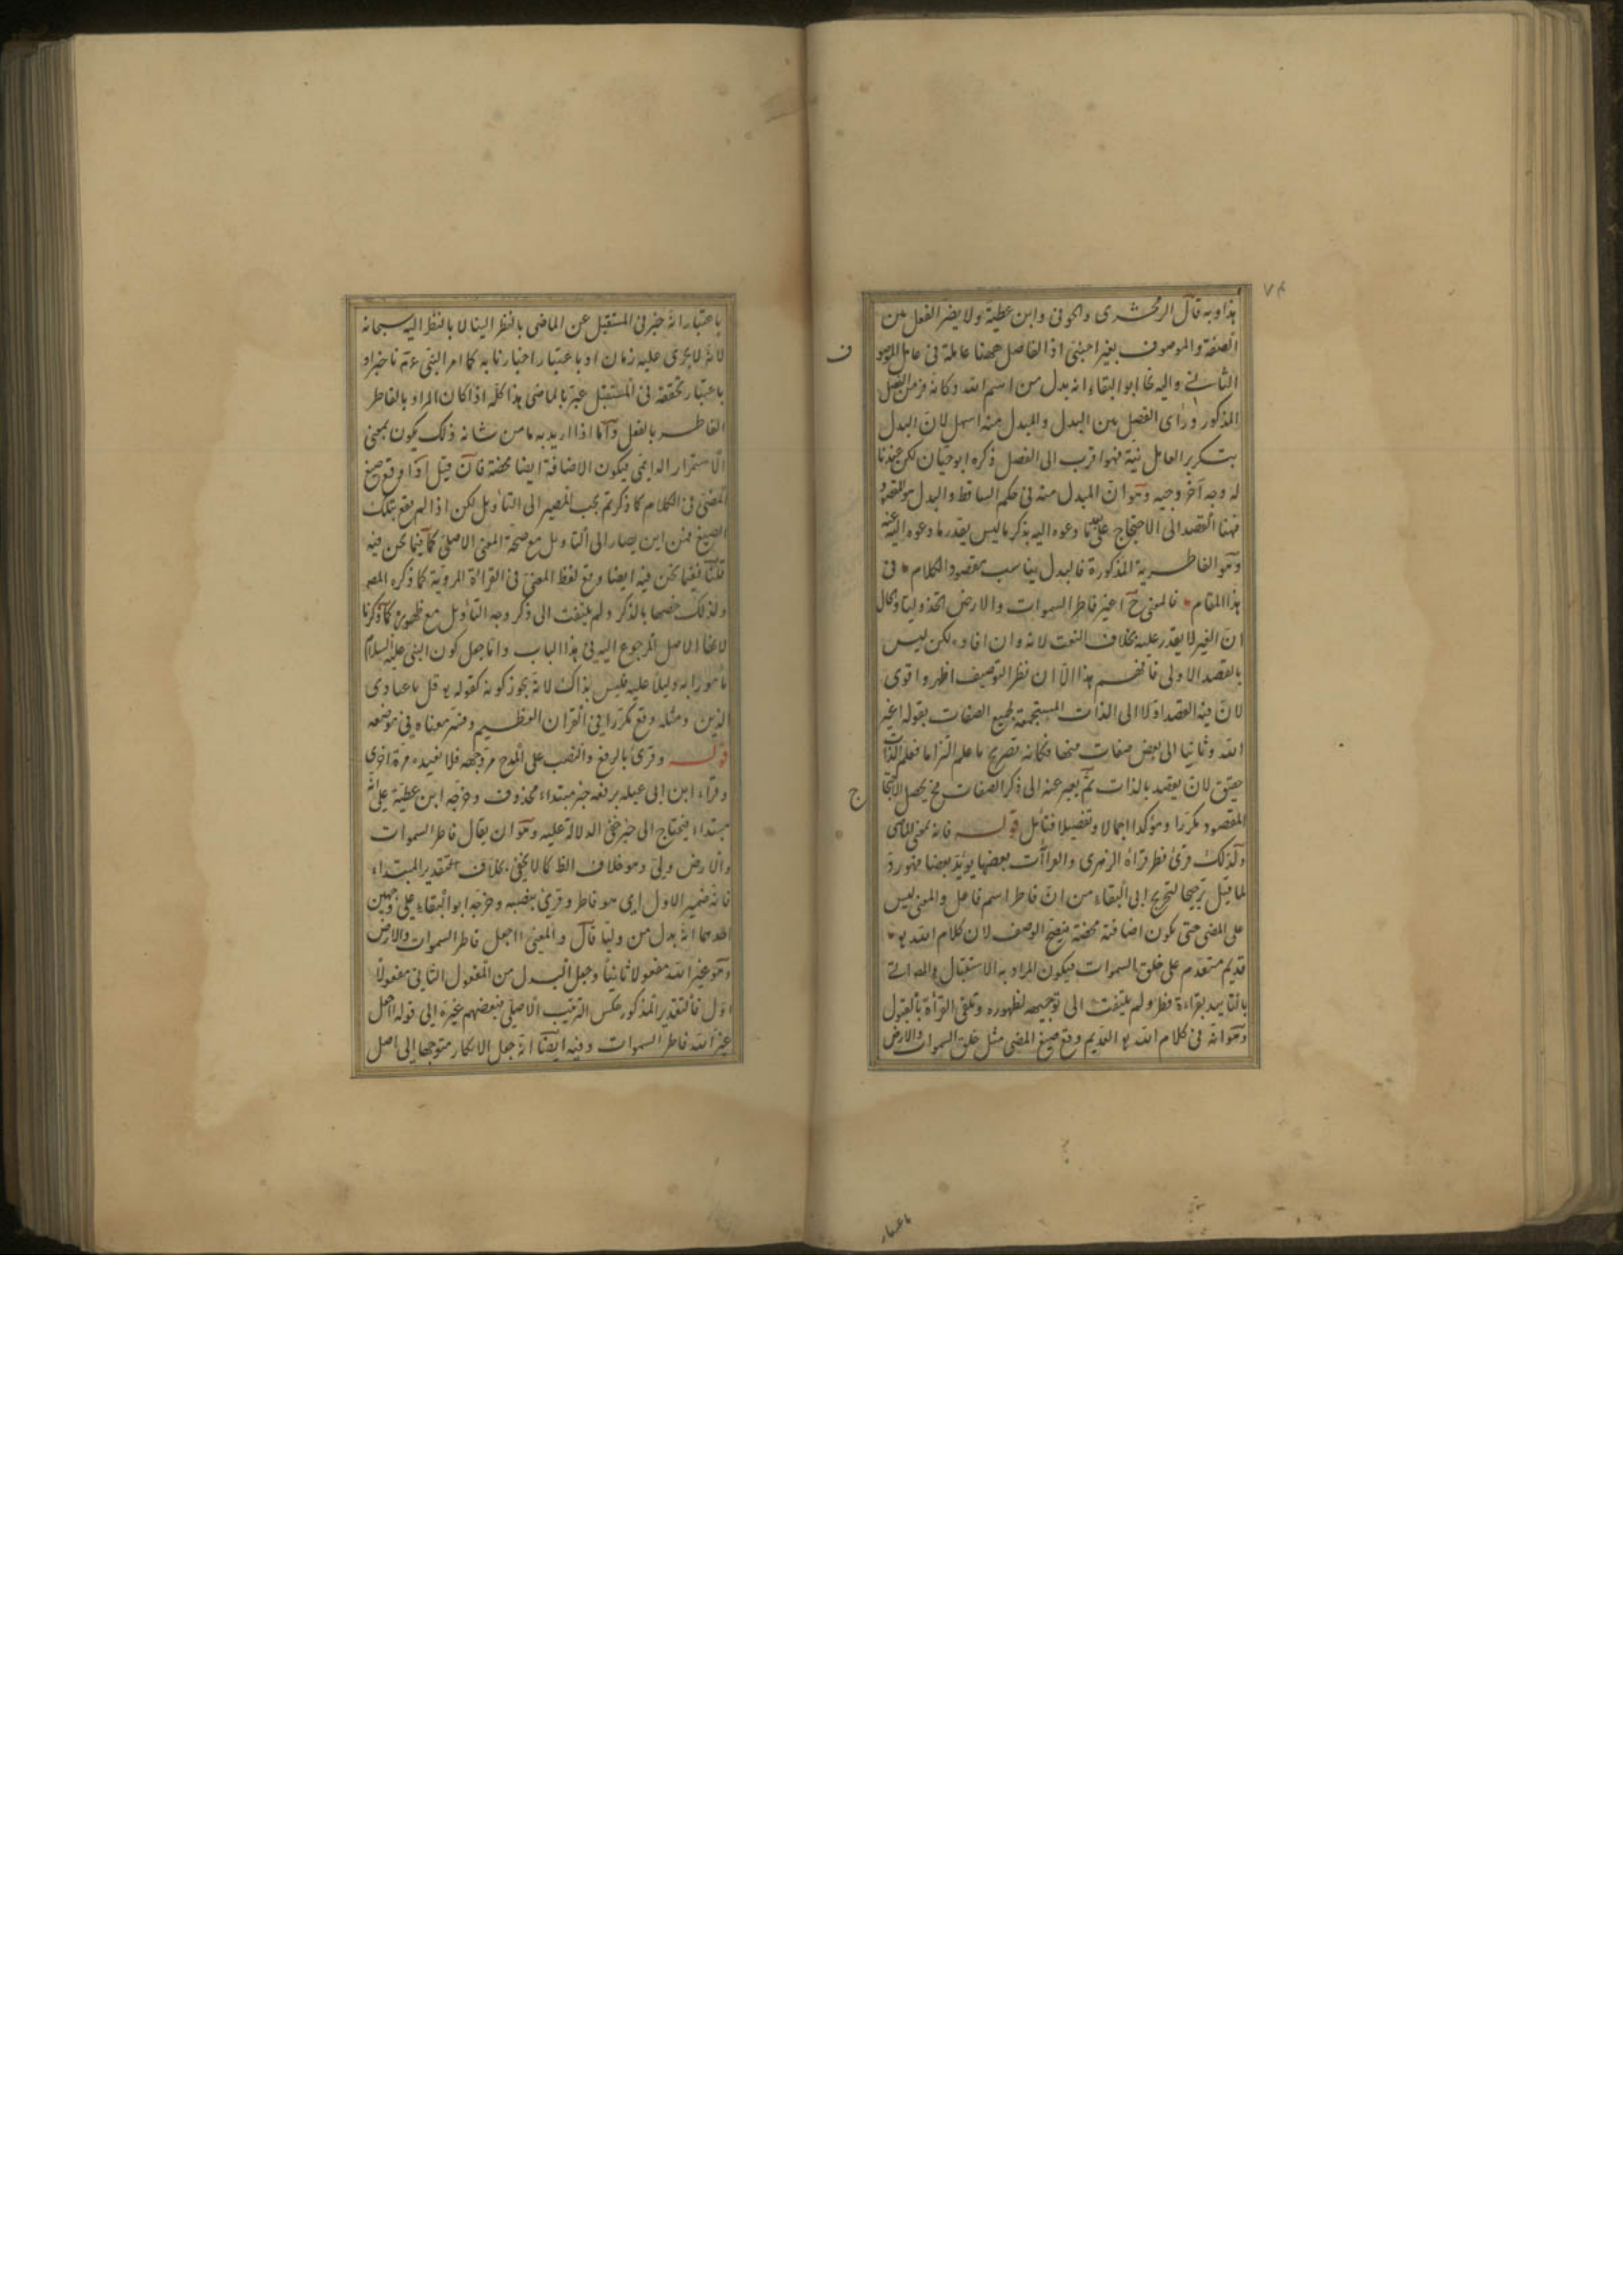 هذا وبه قال الزمخشرى والحوفى وابن عطية ولا يضر الفصل بين
الصفة والموصوف بغير اجنبى اذ الفاصل ههنا عاملة فى عامل الموصو
ف
الثانى واليه نحا ابو البقاء انه بدل من اسم الله وكانه فر من الفصل
المذكور ورأى الفصل بين البدل والمبدل منه اسهل لان البدل
بتكرير العامل نية فهو اقرب الى الفصل ذكره ابو حيان لكن عندنا
له وجه آخر وجيه وهو ان المبدل منه فى حكم الساقط والبدل هو المقصود
فههنا القصد الى الاحتجاج على ما دعوه اليه بذكر ما ليس يقدر ما دعوه اليه
وهو الفاطرية المذكورة فالبدل يناسب مقصود الكلام فى
هذا المقام فالمعنى ح اغير فاطر السموات والارض اتخذ وليا والحال
ان الغير لا يقدر عليه بخلاف النعت لانه وان افاده لكن ليس
بالقصد الاولى فافهم هذا الا ان نظر التوصيف اظهر واقوى
لان فيه القصد اولا الى الذات المستجمعة لجميع الصفات بقوله اغير
الله وثانيا الى بعض صفات منها فكانه تصريح ما علم التزاما فعلم الذات
حقيق لان يقصد بالذات ثم يعبر عنه الى ذكر الصفات فح يحصل الاحتجا
ج
المقصود مكررا ومؤكدا اجمالا وتفصيلا فتأمل قوله فانه بمعنى الماضى
ولذلك قرئ فطر قراه الزهرى والقراآت بعضها يؤيد بعضا فهو رد
لما قيل ترجيحا لتخريج ابى البقاء من ان فاطر اسم فاعل والمعنى ليس
على المضى حتى يكون اضافته محضة فيصح الوصف لان كلام الله تع
قديم متقدم على خلق السموات فيكون المراد به الاستقبال والمص اتى
بالتأييد بقراءة فطر ولم يلتفت الى توجيهه لظهوره وتلقى القرأة بالقبول
وهو انه فى كلام الله تع القديم وقع صيغ المضى مثل خلق السموات والارض
باعتبار
باعتبار انه خبر فى المستقبل عن الماضى بالنظر الينا لا بالنظر اليه سبحانه
لانه لا يجرى عليه زمان او باعتبار اخبارنا به كما امر النبى عم باخبار او
باعتبار تحققه فى المستقبل عبر بالماضى هذا كله اذا كان المراد بالفاطر
الفاطر بالفعل واما اذا اريد به ما من شانه ذلك يكون بمعنى
الاستمرار الدائمى فيكون الاضافة ايضا محضة فان قيل اذا وقع صيغ
المضى فى الكلام كما ذكرتم يجب المصير الى التأويل لكن اذا لم يقع بتلك
الصيغ فمن اين يصار الى التأويل مع صحة المعنى الاصلى كما فيما نحن فيه
قلنا فيما نحن فيه ايضا وقع لفظ المضى فى القرأة المروية كما ذكره المص
ولذلك خصها بالذكر ولم يلتفت الى ذكر وجه التأويل مع ظهوره كما ذكرنا
لانها الاصل المرجوع اليه فى هذا الباب واما جعل كون النبى عليه السلام
مأمورا به دليلا عليه فليس بذاك لانه يجوز كونه كقوله تع قل يا عبادى
الذين ومثله وقع مكررا فى القرآن العظيم وفسر معناه فى موضعه
قوله وقرئ بالرفع والنصب على المدح مر وجهه فلا نفيده مرة اخرى
وقرأ ابن ابى عبلة برفعه خبر مبتداء محذوف وخرجه ابن عطية على انه
مبتداء فيحتاج الى خبر خفى الدلالة عليه وهو ان يقال فاطر السموات
والارض وليى وهو خلاف الظ كما لا يخفى بخلاف تقدير المبتداء
فانه ضمير الاول اى هو فاطر وقرئ بنصبه وخرجه ابو البقاء على وجهين
احدهما انه بدل من وليا قال والمعنى ااجعل فاطر السموات والارض
وهو غير الله مفعولا ثانيا وجعل البدل من المفعول الثانى مفعولا
اول فالتقدير المذكور عكس الترتيب الاصلى فبعضهم غيره الى قوله ااجعل
غير الله فاطر السموات وفيه ايضا انه جعل الانكار متوجها الى اصل